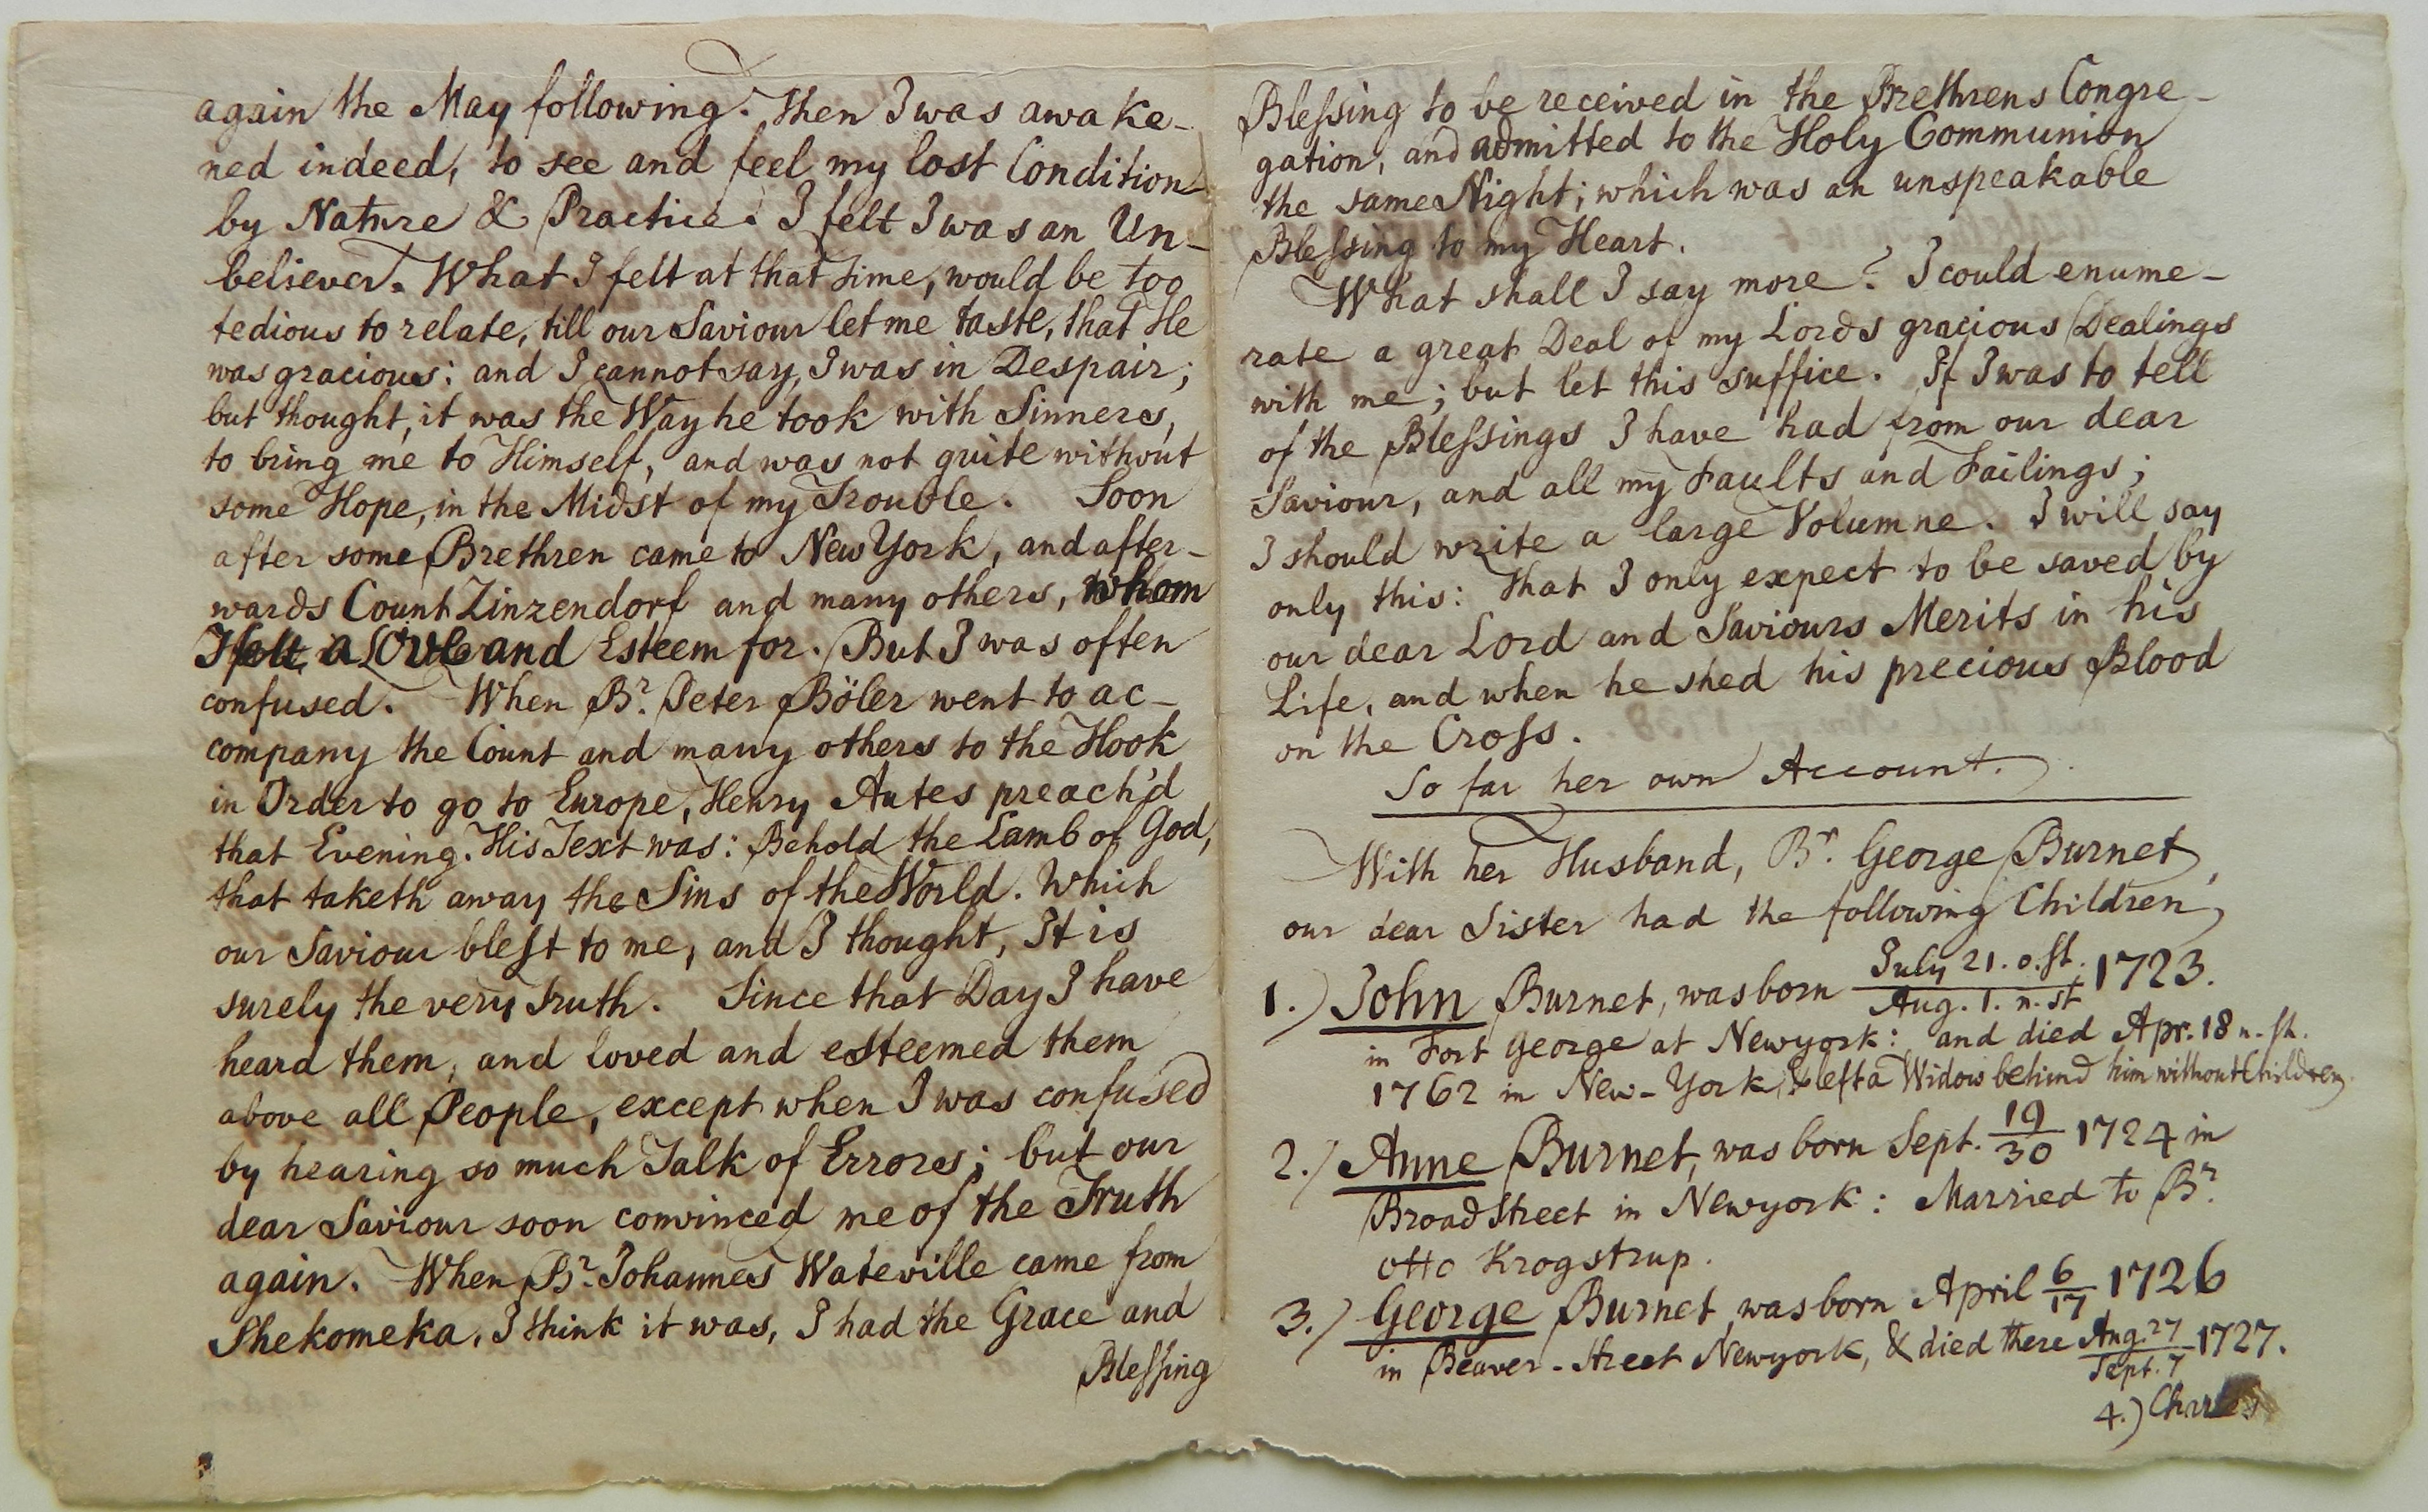 again the May following. Then I was awake-
ned indeed, to see and feel my lost Condition
by Nature & Practice. I felt I was an Un-
believer. What I felt at that Time, would be too
tedious to relate, till our Saviour let me taste, that He
was gracious: and I cannot say, I was in Despair;
but thought, it was the Way he took with Sinners,
to bring me to Himself, and was not quite without
some Hope, in the Midst of my Trouble. Soon
after some Brethren came to New York, and after-
wards Count Zinzendorf and many others, whom
I felt a Love and Esteem for. But I was often
confused. When Br. Peter Böler went to ac-
company the Count and many others to the Hook
in Order to go to Europe, Henry Antes preach'd
that Evening. His Text was: Behold the Lamb of God,
that taketh away the Sins of the World. Which
our Saviour blest to me, and I thought, It is
surely the very Truth. Since that Day I have
heard them, and loved and esteemed them
above all People, except when I was confused
by hearing so much Talk of Errors; but our
dear Saviour soon convinced me of the Truth
again. When Br. Johannes Wateville came from
Shekomeka, I think it was, I had the Grace and
Blessing
Blessing to be received in the Brethrens Congre-
gation, and admitted to the Holy Communion
the same Night; which was an unspeakable
Blessing to my Heart.
What shall I say more? I could enume-
rate a great Deal of my Lords gracious Dealings
with me; but let this suffice. If I was to tell
of the Blessings I have had from our dear
Saviour, and all my Faults and Failings;
I should write a large Volumne. I will say
only this: That I only expect to be saved by
our dear Lord and Saviours Merits in his
Life, and when he shed his precious Blood
on the Cross.
So far her own Account.
With her Husband, Br. George Burnet,
our dear Sister had the following Children,
1.) John Burnet, was born July 21. o. st. / Aug. 1. n. st 1723.
in Fort George at Newyork: and died Apr. 18 n. st.
1762 in New-York, & left a Widow behind him without Children.
2.) Anne Burnet, was born Sept. 19/30 1724 in
Broadstreet in Newyork: Married to Br.
Otto Krogstrup.
3.) George Burnet was born April 6/17 1726
in Beaver-street Newyork, & died there Aug. 27 / Sept. 7 1727.
4.) Charles